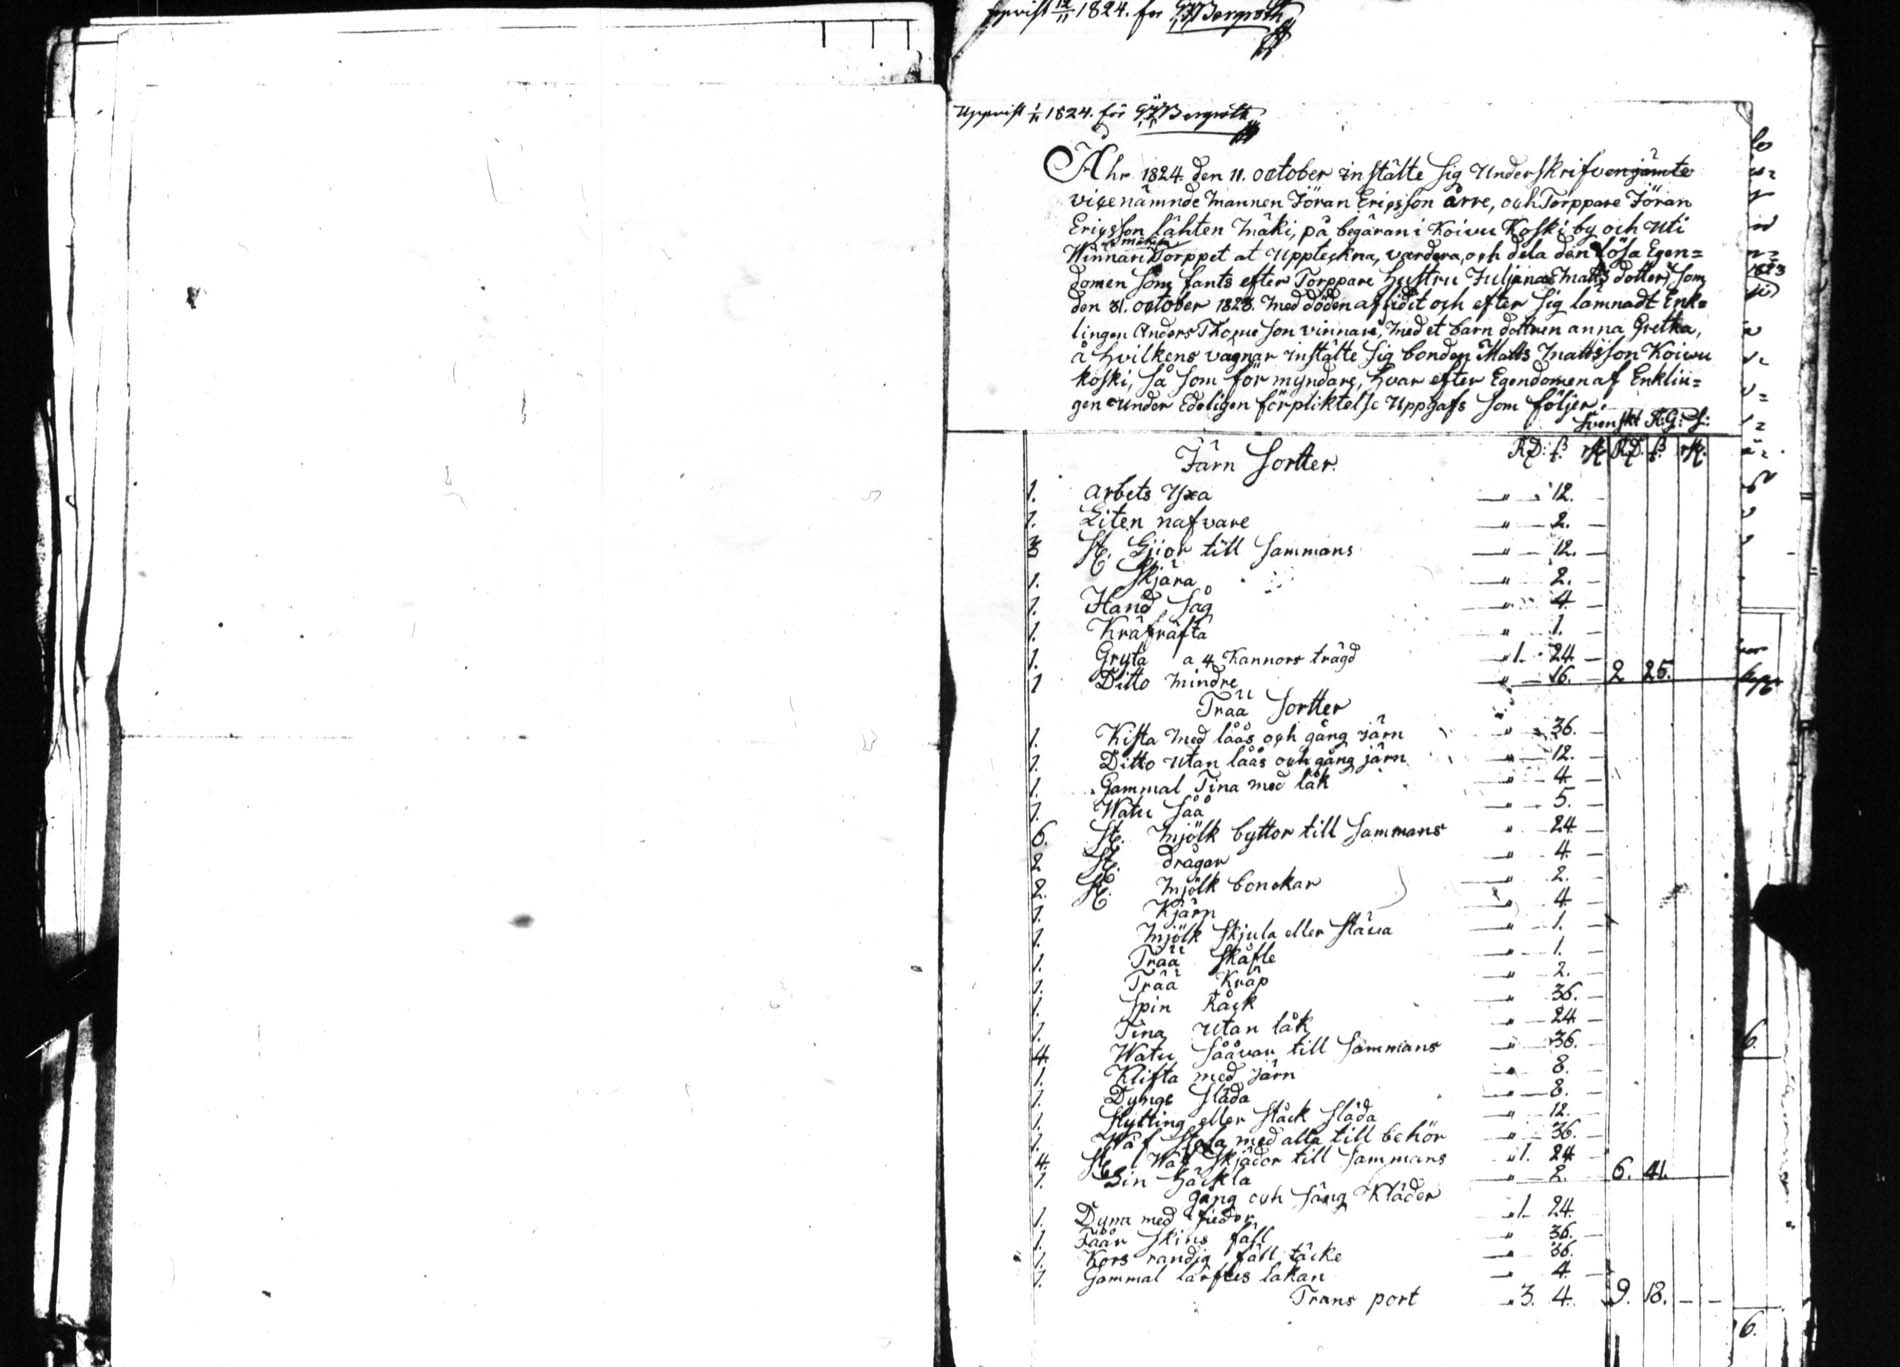 uppvist 12/11 1824. för GJBergroth
Uppvist 1/11 1824. för GJBergroth
Åhr 1824 den 11. october instälte sig Underskrifven jämte
vice nämnde mannen Jöran Ericsson arve, och Torppare Jöran
Ericsson lähten mäki, på begäran i Koivu Koski by och uti
Winnari mäkipä Torppet at uppteckna, värdera, och dela den lösa Egen=
domen som fants efter Torppare hustru Juljana Matts dotter, som
den 31. october 1823. med döden aflidit och efter sig lämnadt Enk=
lingen Anders Thome son vinnari, med et barn dottren anna Gretka,
å hvilkens vagnar instälte sig bonden Matts Mattsson Koivu
koski, så som för myndare, hvar efter Egendomen af Enklin=
gen under Edeligen förpliktelse uppgafs som följer.
Svenskt R:G:S:
Järn Sortter. RD: ß. rst. RD. ß. rst.
1. arbets yxa " 12. –
1. Liten nafvare " 2. –
3 st. Liior till sammans " 12. –
1. Skjära " 2. –
1. Hand såg " 4 –
1. Kräfräfta " 1. –
1. Gryta a 4 Kannors trägd " 1. 24 –
1 Ditto mindre " 16. – 2 25.
Trää Sortter
1. Kista med låås och gång järn " 36. –
1. Ditto utan låås och gång järn " 12. –
1. Gammal Tina med låk " 4 –
1. Watu Såå " 5. –
6. st. mjölk byttor till sammans " 24
2 st. drågar " 4 –
2. st. mjölk bonckar " 2. –
1. Kjärn " 4 –
1. mjölk skjula eller stäva " 1. –
1. Trää skåfle " 1. –
1. Trää Kråp " 2. –
1. Spin Råck " 36. –
1. Tina utan låk " 24 –
4. Watu Sååvar till sammans " 36. –
1. Klifta med järn " 8. –
1. Dynge släda " 8. –
1. Stytting eller stäck släda " 12. –
1. Wäf Stola med alla till behör " 36. –
4. st. Wäf Skjädor till sammans " 1. 24
1. Lin häckla " 2. – 6. 41.
Gång och säng Kläder
1. Dyna med fieder " 1. 24.
1. Fåår skins fäll " 36. –
1. Kors randig fäll täcke " 36. –
1. Gammal lärftes lakan " 4 –
Trans port " 3. 4. 9. 18. – –